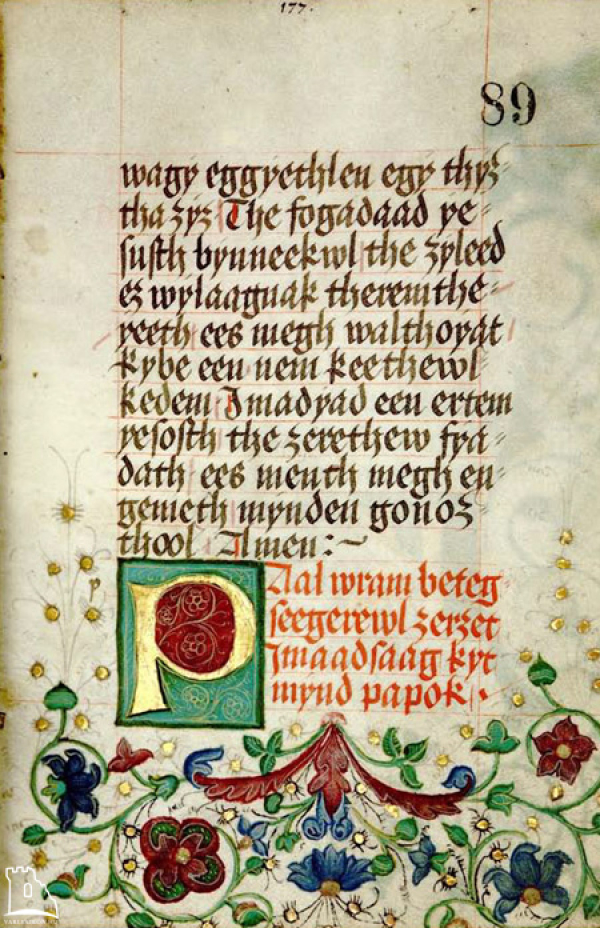 177.
89
wagy eggyethlen egy thyz
tha zyz The fogadaad ye
susth bynneekwl the zyleed
ez wylaagnak theremthe
yeeth ees megh walthoyat
kybe een nem keethewl
kedem Jmadyad een ertem
yesosth the zerethew fya
dath ees menth megh en
gemeth mynden gonoz
thool Amen :~
Paal wram beteg
seegerewl zerzet
Jmaadsaag kyt
mynd papok .